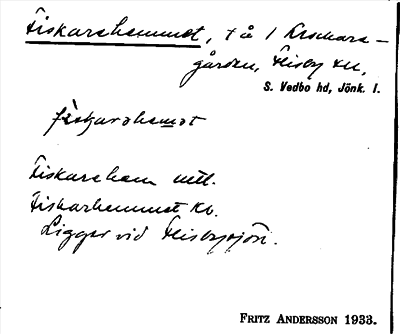 Fiskarehemmet, t å 1 Kromare-
gården, Flisby sn,
S. Vedbo hd, Jönk. l.
fiskarahemət
Fiskarehem mtl.
Fiskarhemmet Kb.
Ligger vid Flisbysjön.
FRITZ ANDERSSON 1933.